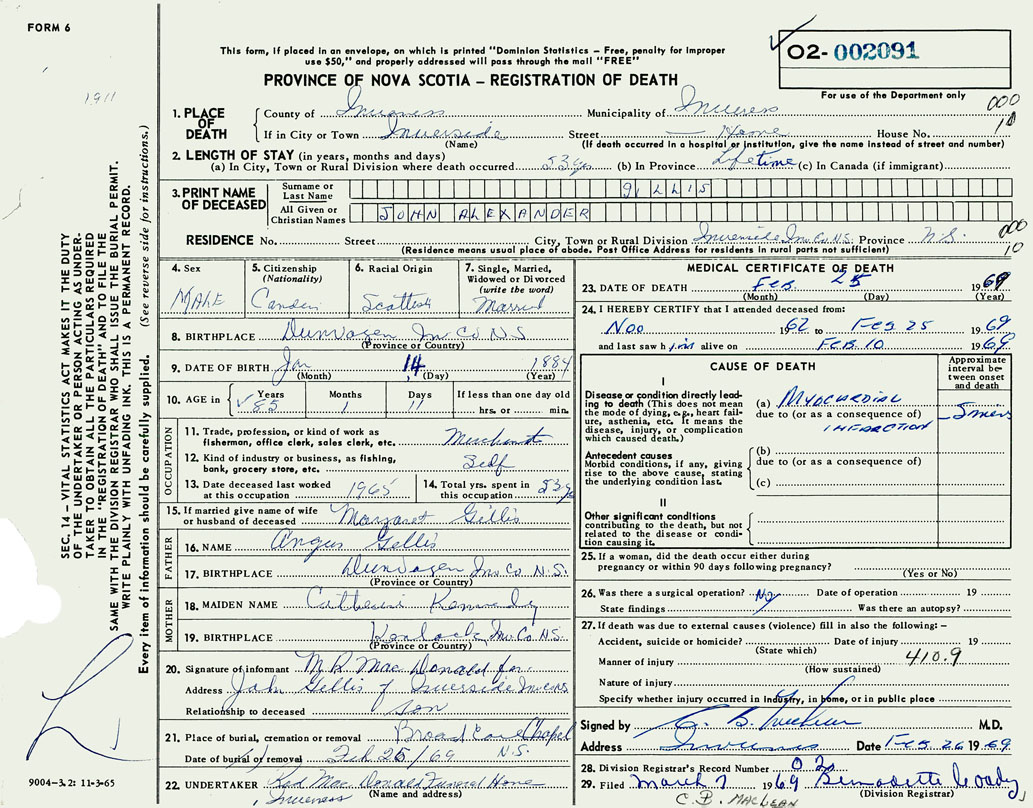 FORM 6
This form, if placed in an envelope, on which is printed "Dominion Statistics – Free, penalty for improper
use $50," and properly addressed will pass through the mail "FREE"
PROVINCE OF NOVA SCOTIA – REGISTRATION OF DEATH
O2- 002091
For use of the Department only
1911
000
10
1. PLACE OF DEATH
County of Inverness Municipality of Inverness
If in City or Town Inverside Street — Home House No.
(Name) (If death occurred in a hospital or institution, give the name instead of street and number)
2. LENGTH OF STAY (in years, months and days)
(a) In City, Town or Rural Division where death occurred 53 yrs (b) In Province Lifetime (c) In Canada (if immigrant)
3. PRINT NAME OF DECEASED
Surname or Last Name GILLIS
All Given or Christian Names JOHN ALEXANDER
000
10
RESIDENCE No. Street City, Town or Rural Division Inverside Inv. Co. N.S. Province N.S.
(Residence means usual place of abode. Post Office Address for residents in rural parts not sufficient)
4. Sex MALE
5. Citizenship (Nationality)
6. Racial Origin Scottish
7. Single, Married, Widowed or Divorced (write the word) Married
8. BIRTHPLACE Dunvegan Inv Co N S
(Province or Country)
9. DATE OF BIRTH Jan 14, 1884
(Month) (Day) (Year)
10. AGE in Years 85 Months 1 Days 11 If less than one day old hrs. or min.
OCCUPATION
11. Trade, profession, or kind of work as fisherman, office clerk, sales clerk, etc. Merchant
12. Kind of industry or business, as fishing, bank, grocery store, etc. Self
13. Date deceased last worked at this occupation 1965
14. Total yrs. spent in this occupation 53 yrs
15. If married give name of wife or husband of deceased Margaret Gillis
FATHER
16. NAME Angus Gillis
17. BIRTHPLACE Dunvegan Inv Co N.S.
(Province or Country)
MOTHER
18. MAIDEN NAME Catherine Kennedy
19. BIRTHPLACE Kenloch, Inv. Co. N.S.
(Province or Country)
20. Signature of informant M R MacDonald for
Address John Gillis of Inverside
Relationship to deceased son
21. Place of burial, cremation or removal Broad Cove Chapel
Date of burial or removal Feb 25/69 N.S.
22. UNDERTAKER MacDonald Funeral Home
Inverness (Name and address)
MEDICAL CERTIFICATE OF DEATH
23. DATE OF DEATH Feb. 25 1969
(Month) (Day) (Year)
24. I HEREBY CERTIFY that I attended deceased from:
Nov 1962 to Feb 25 1969
and last saw him alive on Feb. 10 1969
CAUSE OF DEATH
Approximate interval between onset and death
I
Disease or condition directly leading to death (This does not mean the mode of dying, e.g., heart failure, asthenia, etc. It means the disease, injury, or complication which caused death.)
(a) MYOCARDIAL
due to (or as a consequence of)
INFARCTION
Antecedent causes
Morbid conditions, if any, giving rise to the above cause, stating the underlying condition last.
(b)
due to (or as a consequence of)
(c)
II
Other significant conditions contributing to the death, but not related to the disease or condition causing it.
25. If a woman, did the death occur either during pregnancy or within 90 days following pregnancy?
(Yes or No)
26. Was there a surgical operation? No Date of operation 19
State findings Was there an autopsy?
27. If death was due to external causes (violence) fill in also the following: –
Accident, suicide or homicide? Date of injury 19
(State which)
Manner of injury 410.9
(How sustained)
Nature of injury
Specify whether injury occurred in industry, in home, or in public place
Signed by M.D.
Address Inverness Date Feb. 26 1969
28. Division Registrar's Record Number 02
29. Filed March 7 1969 Bernadette
(Division Registrar)
C. B. MACLEAN
SEC. 14 – VITAL STATISTICS ACT MAKES IT THE DUTY
OF THE UNDERTAKER OR PERSON ACTING AS UNDER-
TAKER TO OBTAIN ALL THE PARTICULARS REQUIRED
IN THE "REGISTRATION OF DEATH" AND TO FILE THE
SAME WITH THE DIVISION REGISTRAR WHO SHALL ISSUE THE BURIAL PERMIT.
WRITE PLAINLY WITH UNFADING INK. THIS IS A PERMANENT RECORD.
Every item of information should be carefully supplied. (See reverse side for instructions.)
9004-3.2: 11-3-65